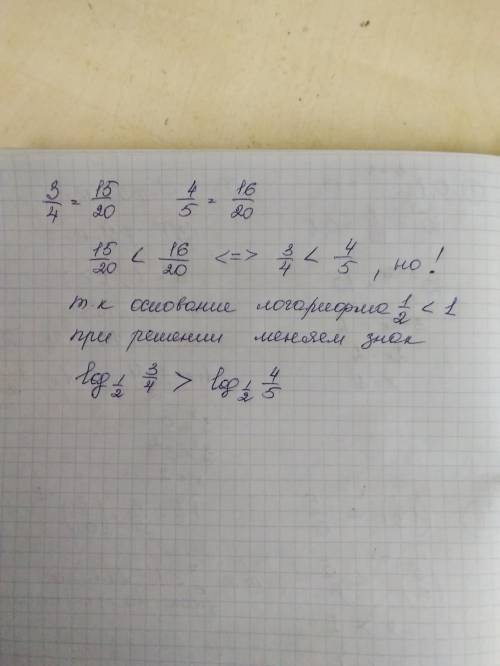 3/4 = 15/20   4/5 = 16/20
15/20 < 16/20 <=> 3/4 < 4/5 , но!
т.к основание логарифма 1/2 < 1
при решении меняем знак
log_{1/2} 3/4 > log_{1/2} 4/5